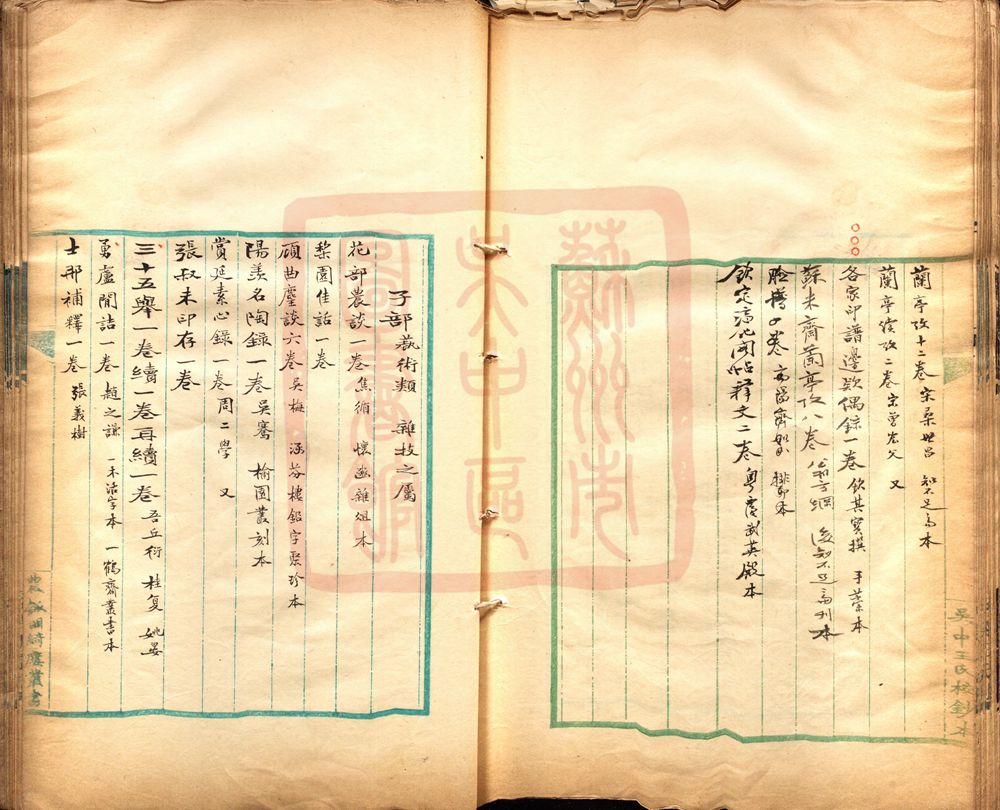 蘭亭攷十二卷 宋桑世昌 知不足齋本
蘭亭續攷二卷 宋 又
各家印譜邊欵偶錄一卷 飲其寶撰 手稾本
蘇米齋蘭亭攷八卷 翁方綱 後知不足齋刊本
臉譜 卷 高陽齊如山 排印本
欽定淳化閣帖釋文二卷 粵覆武英殿本
吳中王氏校鈔本
子部藝術類 雜技之屬
花部農談一卷 焦循 懷豳雜俎本
梨園佳話一卷
顧曲麈談六卷 吳梅 涵芬樓鉛字聚珍本
陽羨名陶錄一卷 吳騫 榆園叢刻本
賞延素心錄一卷 周二學 又
張叔未印存一卷
三十五舉一卷續一卷再續一卷 吾丘衍 桂复 姚晏
勇盧閒詰一卷 趙之謙 一木活字本 一鶴齋叢書本
士那補釋一卷 張義樹
蘇州市
吳中區
圖書館